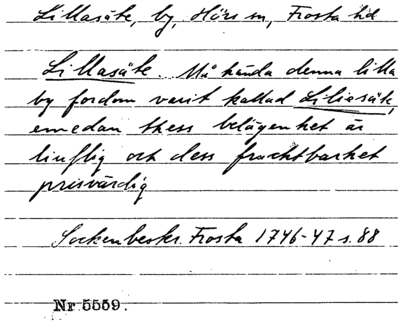 Lillasäte, by, Hörs sn, Frosta hd
Lillasäte. Må hända denna lilla
by fordom varit kallad Liliesäte,
emedan thess belägenhet är
liuflig och dess fruchtbarhet
prisvärdig
Sockenbeskr. Frosta 1746-47 s. 88
Nr 5559.